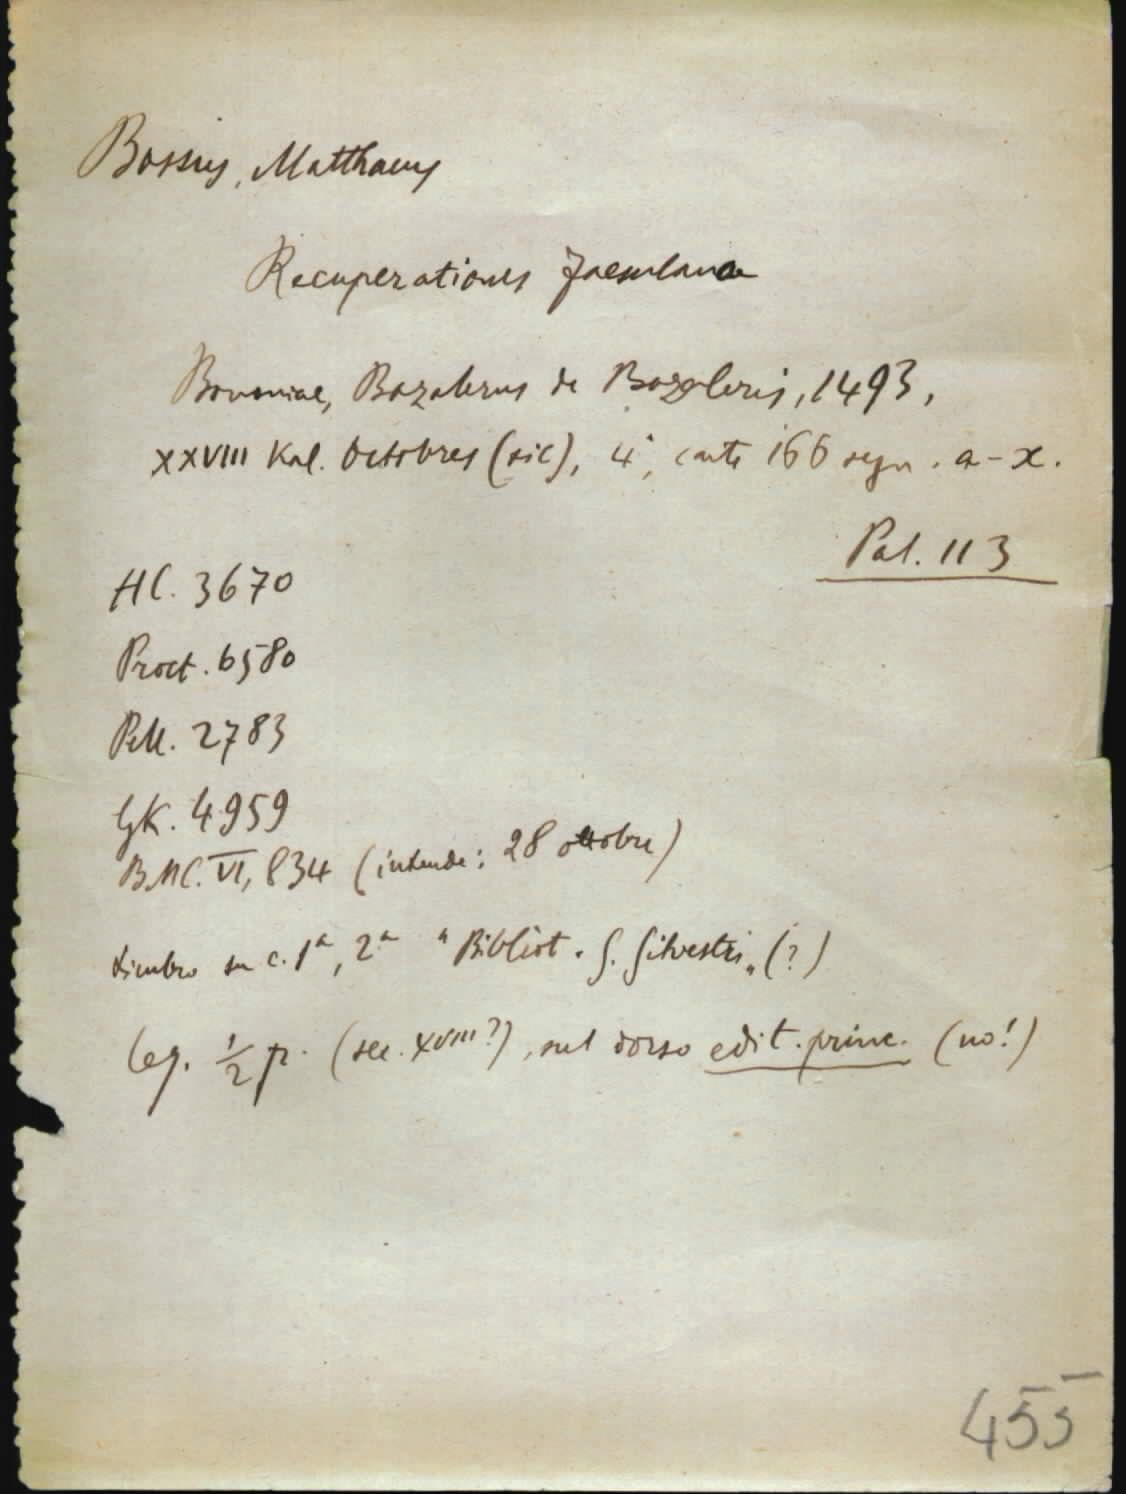 Bossus, Matthaeus
Recuperationes Faesulanae
Bononiae, Bazalerus de Bazaleris, 1493,
XXVIII Kal. Octobres (sic), 4°, carte 166 segn. a-x.
Pal. 113
HC. 3670
Proct. 6580
Pell. 2783
GK. 4959
BMC. VI, 834 (intende: 28 ottobre)
timbro su c. 1ª, 2ª "Bibliot. S. Silvestri" (?)
leg. 1/2 p. (sec. XVIII?), sul dorso edit. princ. (no!)
455